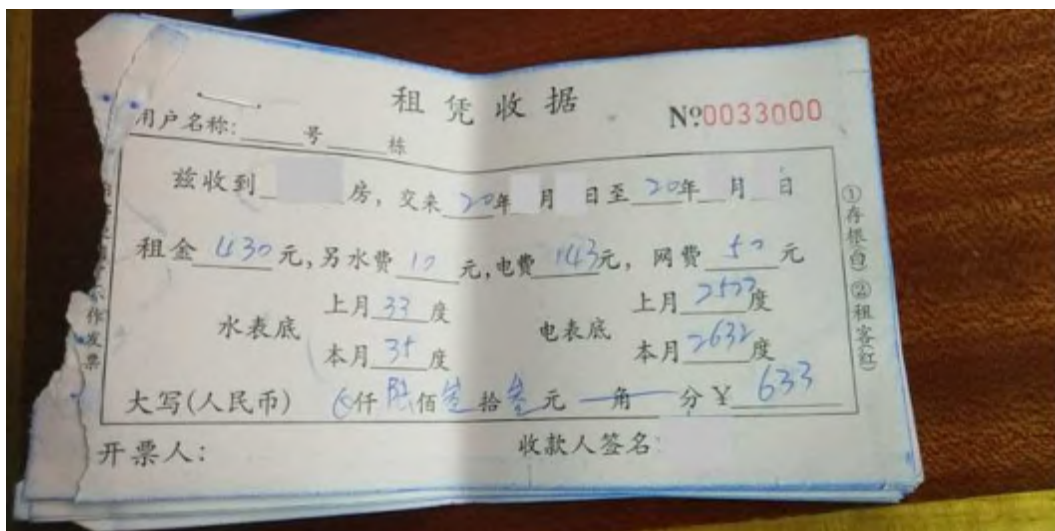 租凭收据
№0033000
用户名称:____号____栋
兹收到____房,交来20年 月 日至20年 月 日
租金430元,另水费10元,电费143元,网费50元
水表底 上月33度 电表底 上月2502度
本月35度 本月2632度
大写(人民币) 仟陆佰叁拾叁元 角 分¥633
开票人: 收款人签名:
①存根(白)②租客(红)
作发票